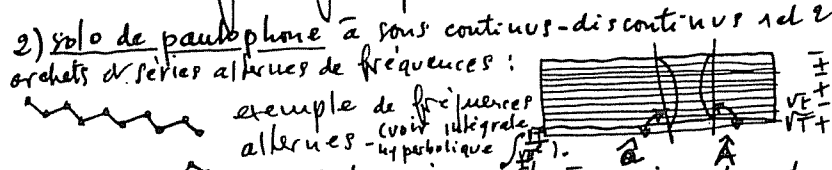 2) solo de paulophone à sons continus-discontinus 1 et 2
archets d. séries alternes de fréquences :
exemple de fréquences
alternes - (voir intégrale
hyperbolique
â Â